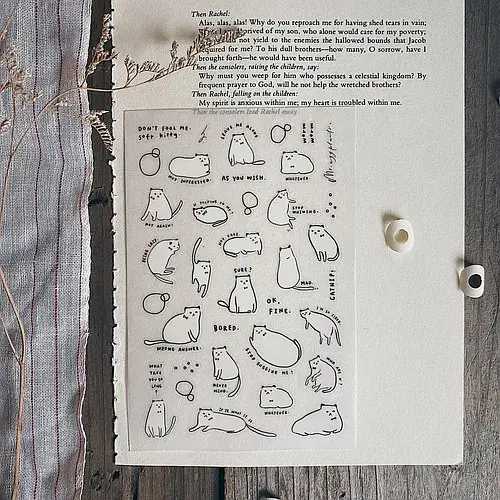 Then Rachel:
Alas, alas, alas! Why do you reproach me for having shed tears in vain;
of my son, who alone would care for my poverty;
not yield to the enemies the hallowed bounds that Jacob
for me? To his dull brothers—how many, O sorrow, have I
brought forth—he would have been useful.
Then the consolers, raising the children, say:
Why must you weep for him who possesses a celestial kingdom? By
frequent prayer to God, will he not help the wretched brothers?
Then Rachel, falling on the children:
My spirit is anxious within me; my heart is troubled within me.
Then the consolers lead Rachel away.
DON'T FOOL ME.
soft kitty.
LEAVE ME ALONE
NOT INTERESTED.
AS YOU WISH.
WHATEVER.
NOT AGAIN?
U TALKING TO ME?
STOP WHINING.
BEING LAZY
NOT CARE.
SURE?
MAD.
CATNIP!
OK,
FINE.
I'M SO TIRED.
WRONG ANSWER.
BORED.
STOP BUGGING ME!
WHAT
TAKE
YOU SO
LONG
NEVER
MIND.
IT IS WHAT IT IS
WHATEVER.